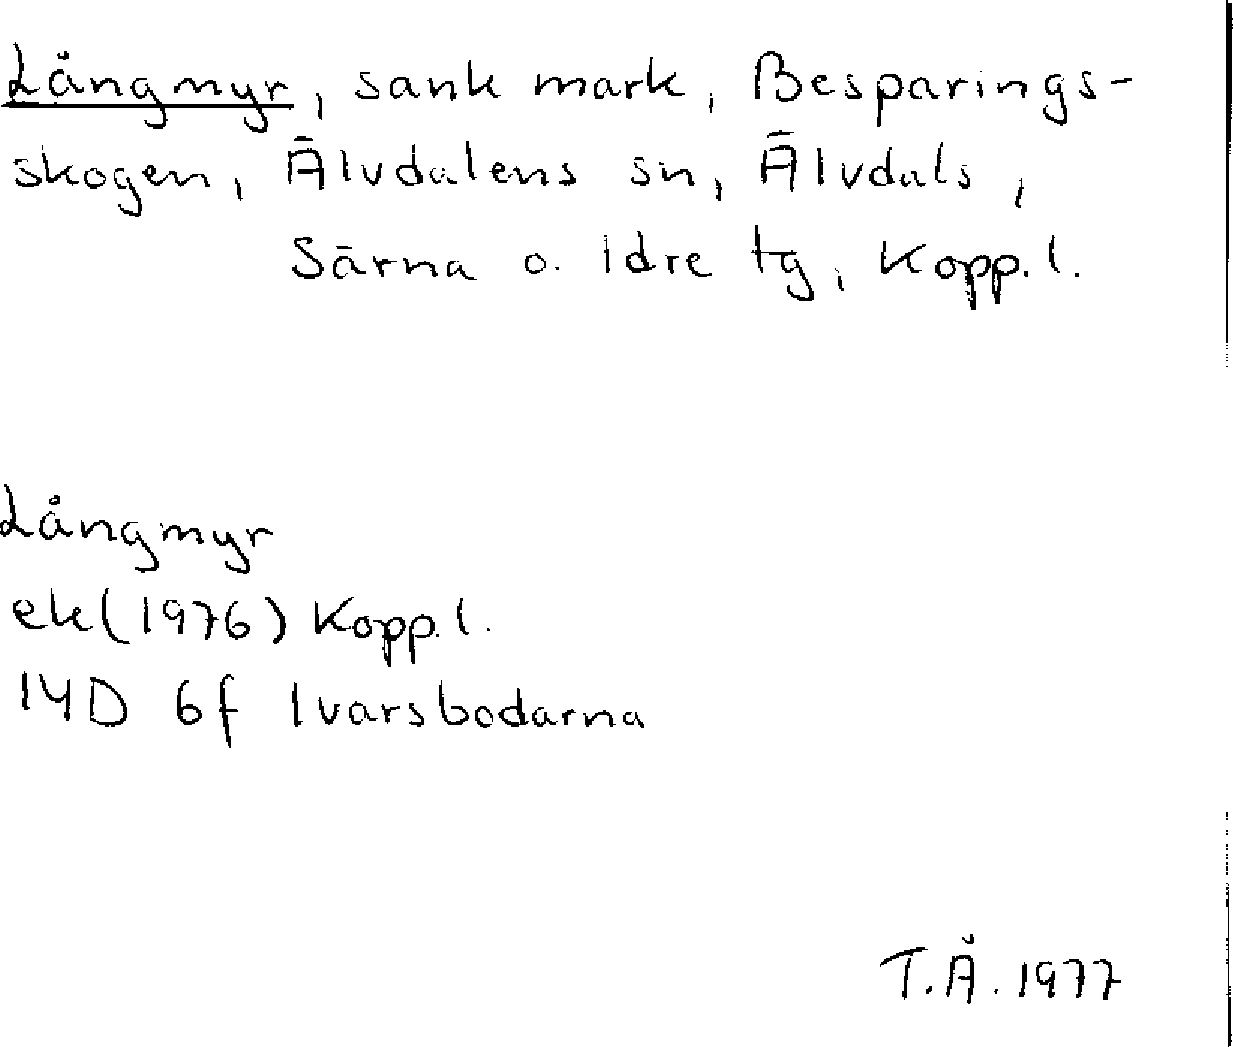 Långmyr, sank mark, Besparings-
skogen, Älvdalens sn, Älvdals,
Särna o. Idre tg, Kopp. l.
Långmyr
ek (1976) Kopp. l.
14D 6f Ivarsbodarna
T.Å. 1977